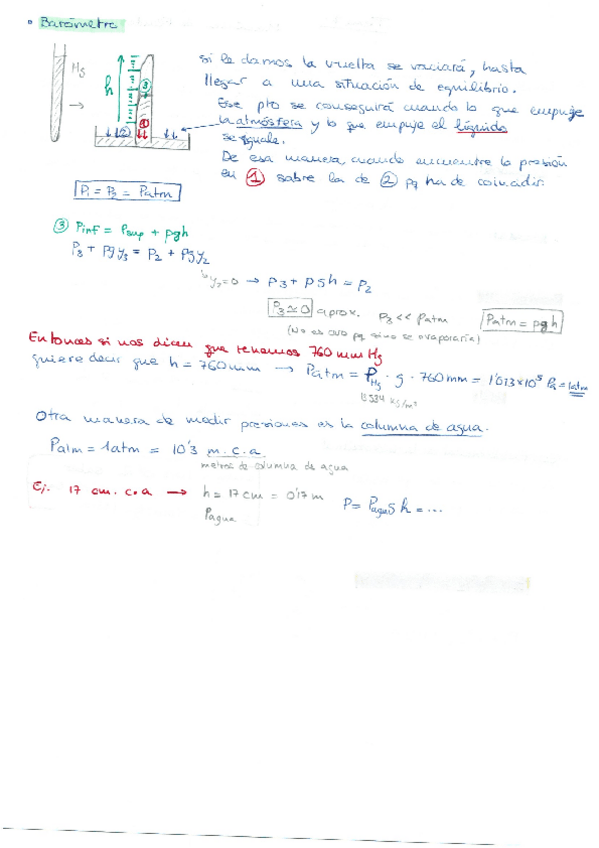 • Barómetro
Hg
h
③
①
②
si le damos la vuelta se vaciará, hasta
llegar a una situación de equilibrio.
Ese pto se conseguirá cuando lo que empuje
la atmósfera y lo que empuje el líquido
se iguale.
De esa manera, cuando encuentre la presión
en ① sabre la de ② pq ha de coincidir.
P₁ = P₂ = Patm
③ Pinf = Psup + ρgh
P₃ + ρgy₃ = P₂ + ρgy₂
y₂=0 → P₃ + ρgh = P₂
P₃ ≃ 0 aprox. P₃ << Patm
(No es cero pq sino se evaporaría)
Patm = ρgh
Entonces si nos dicen que tenemos 760 mm Hg
quiere decir que h = 760mm → Patm = ρHg · g · 760mm = 1'013×10⁵ Pa = 1atm
kg/m³
Otra manera de medir presiones es la columna de agua.
Patm = 1atm = 10'3 m.c.a.
metros de columna de agua
Ej. 17 cm.c.a → h = 17cm = 0'17m P = ρagua g h = ...
ρagua